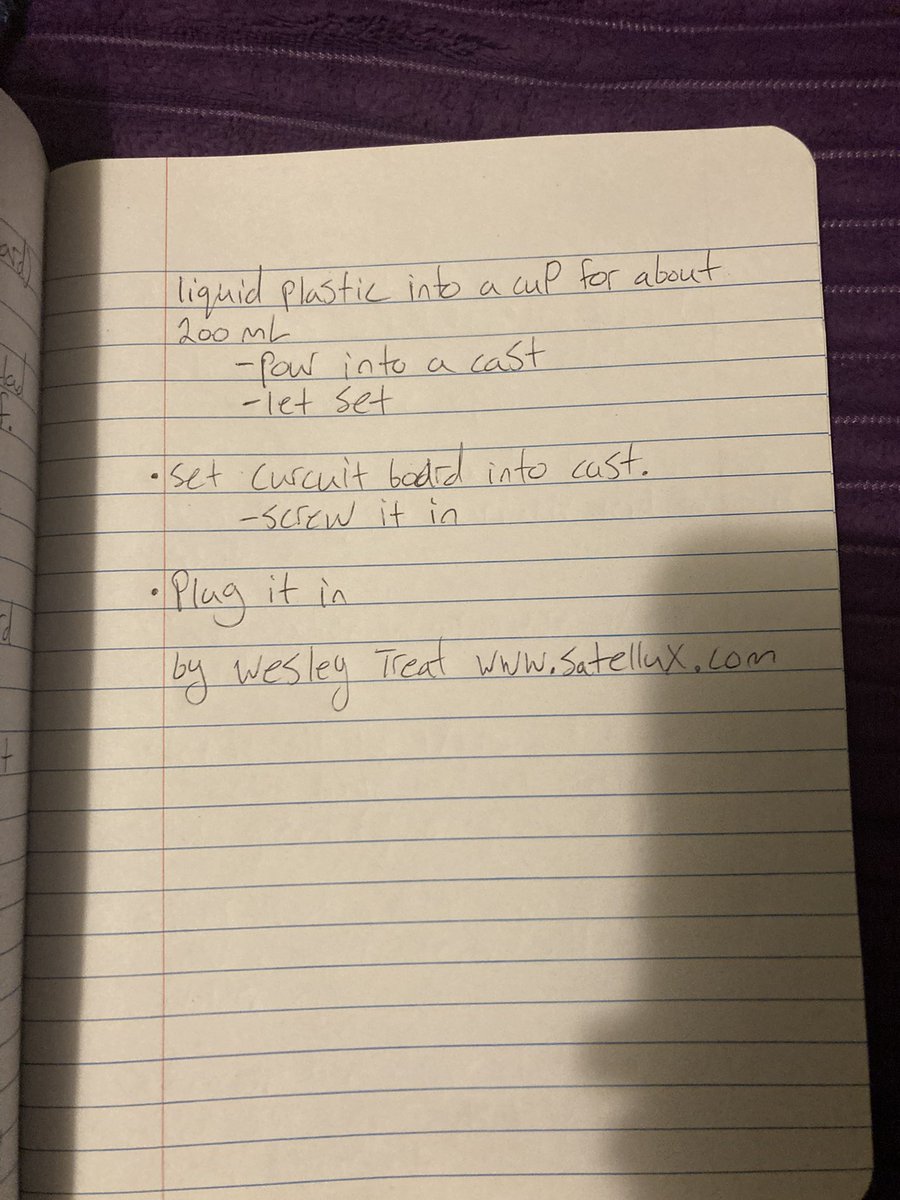 liquid plastic into a cup for about
200 mL
-pour into a cast
-let set
• set curcuit board into cast.
-screw it in
• Plug it in
by Wesley Treat www.satellux.com